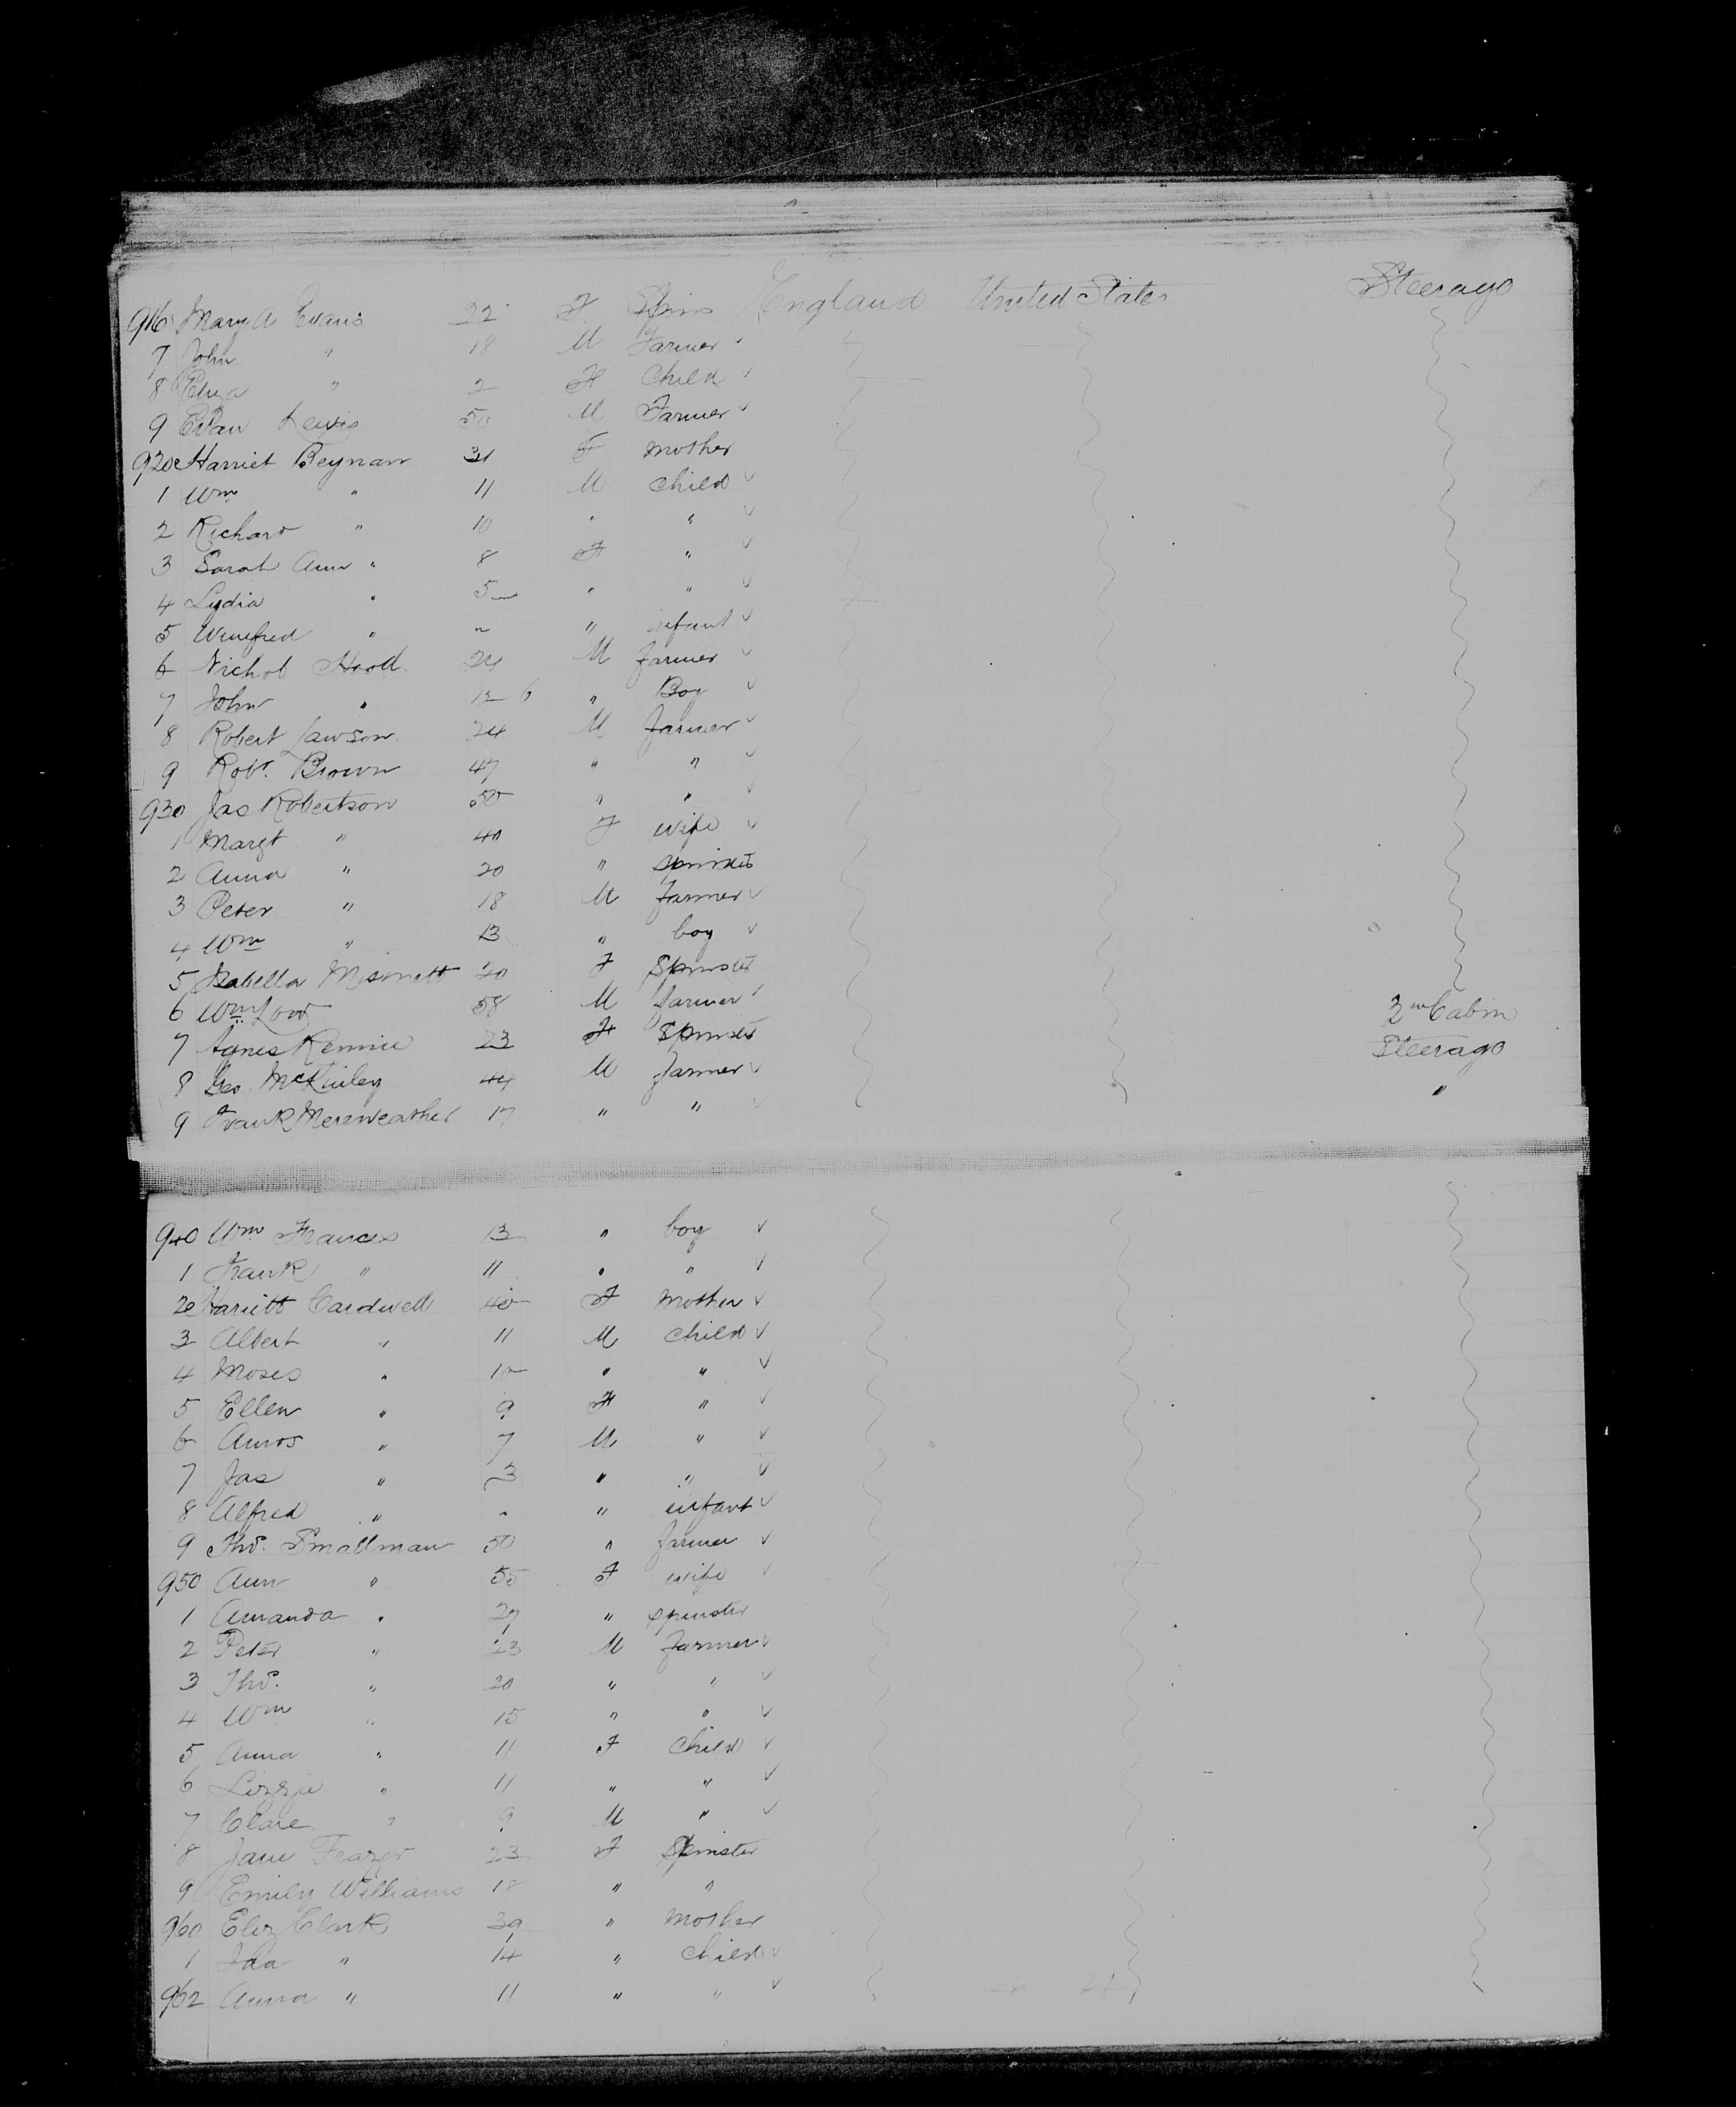 916 Mary A Evans 22 F Spins England United States Steerage
7 John " 18 M Farmer
8 Eliza " 2 F Child
9 Evan Lewis 50 M Farmer
920 Harriet Beynan 31 F Mother
1 Wm " 11 M Child
2 Richard " 10 " "
3 Sarah Ann " 8 F "
4 Lydia " 5 " "
5 Winefred " " " infant
6 Nichol Hood 24 M farmer
7 John " 12 " Boy
8 Robert Lawson 24 M farmer
9 Robt. Brown 47 " "
930 Jas Robertson 50 " "
1 Margt " 40 F wife
2 Anna " 20 " Spinster
3 Peter " 18 M Farmer
4 Wm " 13 " boy
5 Isabella 20 F Spinster
6 Wm Low 58 M farmer 2nd Cabin
7 Agnes Rennie 23 F Spinster Steerage
8 Geo. McKinley 44 M farmer "
9 Frank Mereweather 17 " "
940 Wm Frances 13 " boy
1 Frank " 11 " "
2 Harriett Cardwell 40 F Mother
3 Albert " 11 M Child
4 Moses " 10 " "
5 Ellen " 9 F "
6 Amos " 7 M "
7 Jas " 3 " "
8 Alfred " " " infant
9 Thos. Smallman 50 " farmer
950 Ann " 55 F wife
1 Amanda " 27 " Spinster
2 Peter " 23 M Farmer
3 Thos. " 20 " "
4 Wm " 15 " "
5 Anna " 11 F Child
6 Lizzie " 11 " "
7 Clare " 9 M "
8 Jane Frazer 23 F Spinster
9 Emily Williams 18 " "
960 Eliz Clark 39 " Mother
1 Ida " 14 " Child
962 Anna " 11 " "